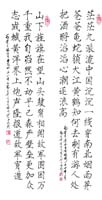 茫茫九派流中国沉沉一线穿南北烟雨莽
苍苍龟蛇锁大江黄鹤知何去剩有游人处
把酒酹滔滔心潮逐浪高
山下旌旗在望山头鼓角相闻敌军围困万
千重我自岿然不动早已森严壁垒更加众
志成城黄洋界上炮声隆报道敌军宵遁